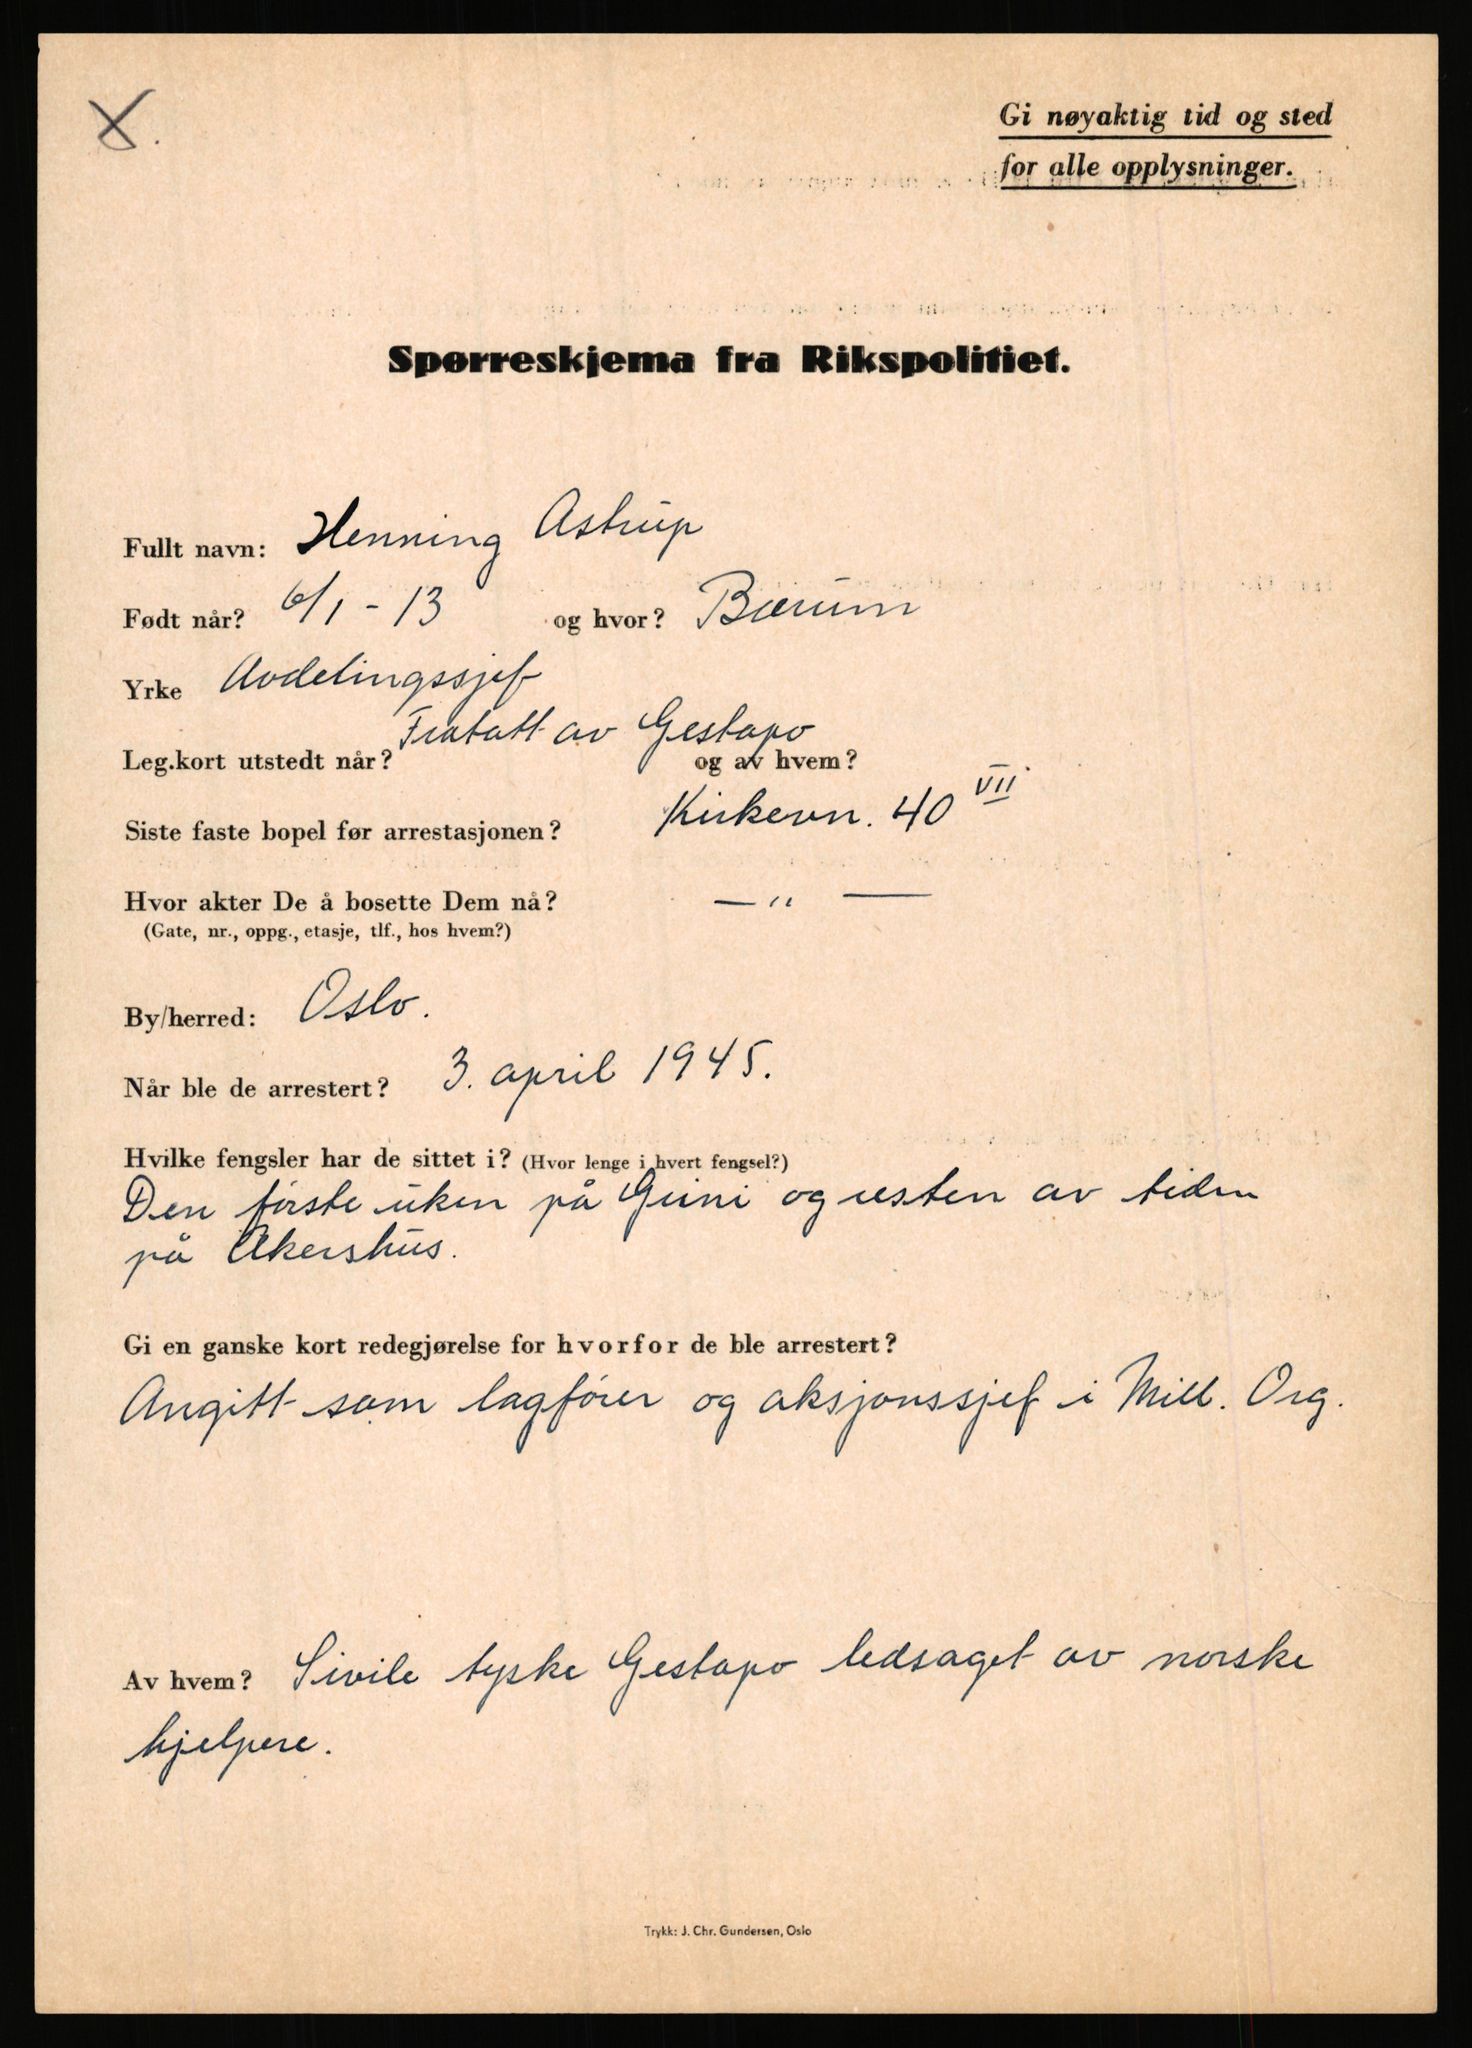 X.
Gi nøyaktig tid og sted
for alle opplysninger.
Spørreskjema fra Rikspolitiet.
Fullt navn: Henning Astrup
Født når? 6/1 - 13 og hvor? Bærum
Yrke Avdelingssjef
Fratatt av Gestapo
Leg.kort utstedt når? og av hvem?
Siste faste bopel før arrestasjonen? Kirkevn. 40 VII
Hvor akter De å bosette Dem nå? — „ —
(Gate, nr., oppg., etasje, tlf., hos hvem?)
By/herred: Oslo.
Når ble de arrestert? 3. april 1945.
Hvilke fengsler har de sittet i? (Hvor lenge i hvert fengsel?)
Den første uken på Grini og resten av tiden
på Akershus.
Gi en ganske kort redegjørelse for hvorfor de ble arrestert?
Angitt som lagfører og aksjonssjef i Mill. Org.
Av hvem? Sivile tyske Gestapo ledsaget av norske
hjelpere.
Trykk: J. Chr. Gundersen, Oslo